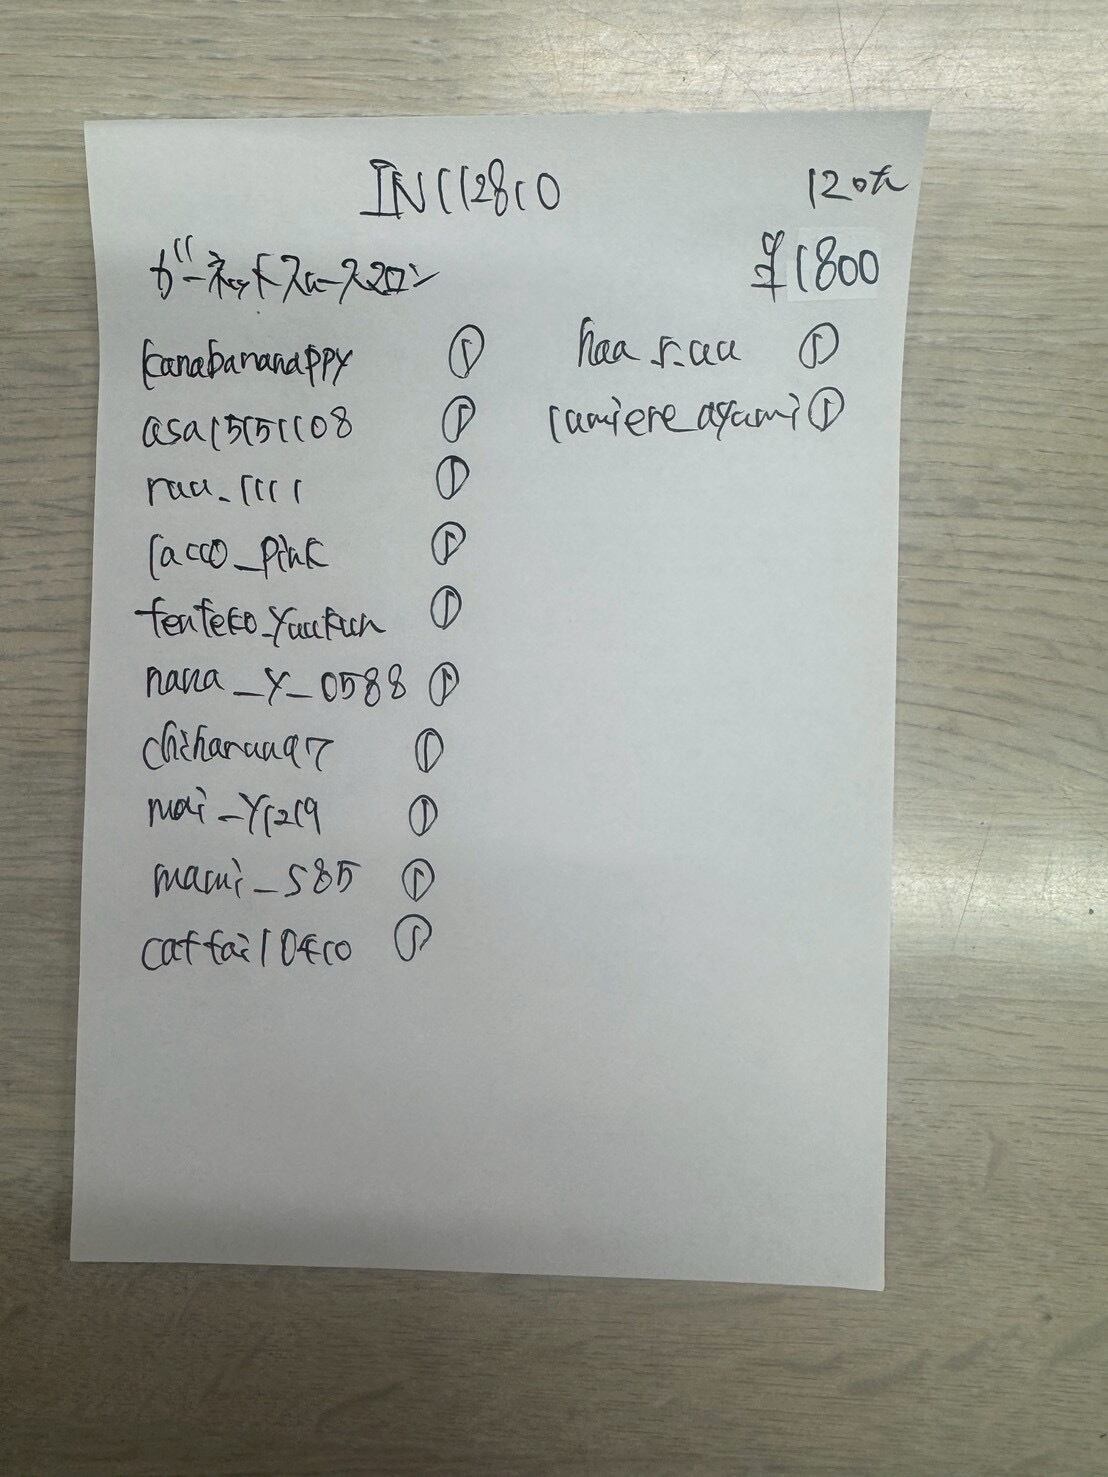 IN112810
120th
ガーネットスムースマロン
¥1800
kanabananappy ①
asa15151108 ①
ruu_1111 ①
lacco_pink ①
tenteko_yuukun ①
nana_y_0588 ①
chiharuu97 ①
moi_y1219 ①
mami_s85 ①
cattail0410 ①
haa_r.uu ①
lumiere_ayumi ①